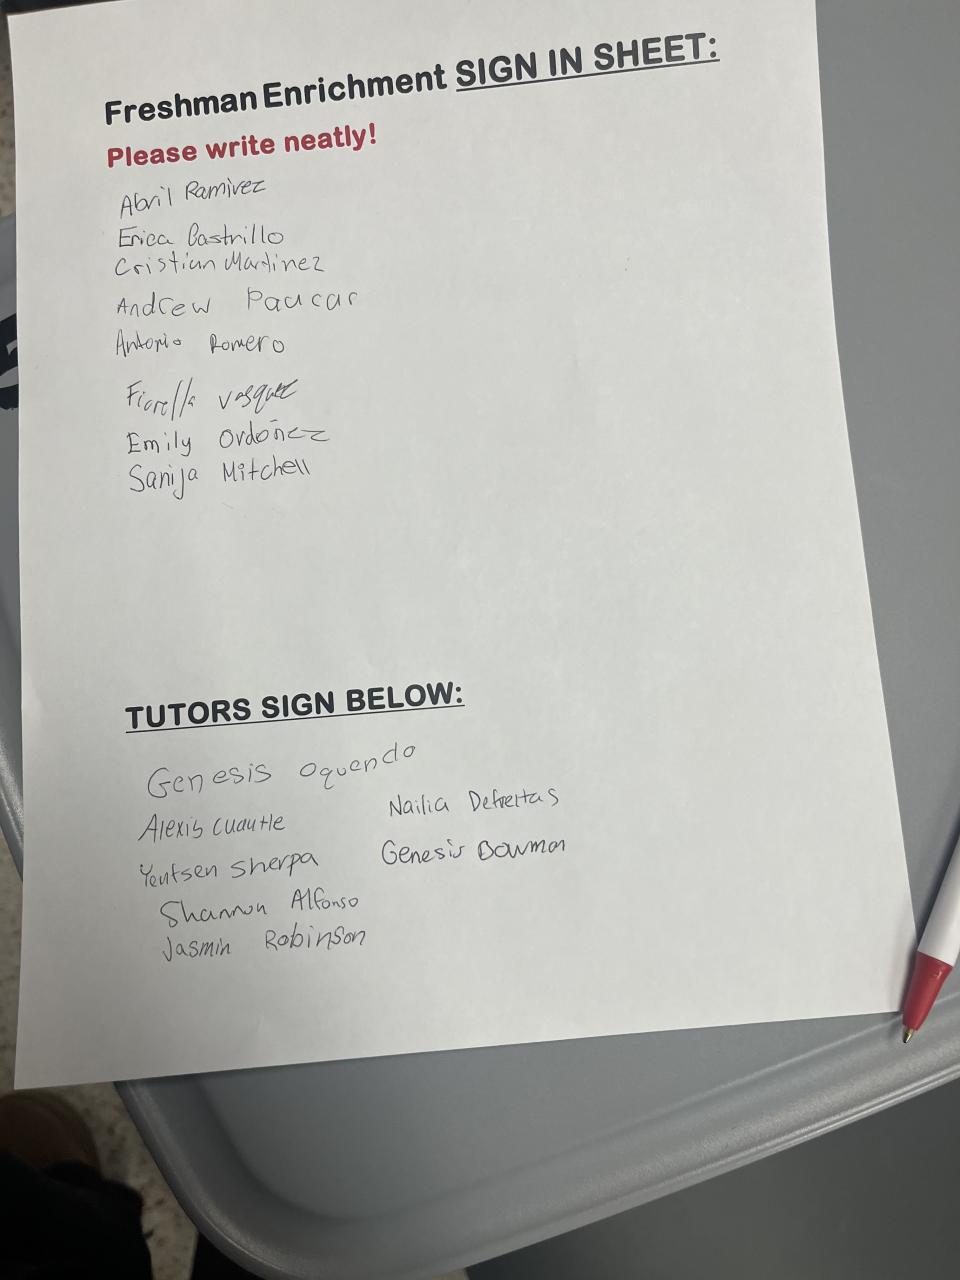 Freshman Enrichment SIGN IN SHEET:
Please write neatly!
Abril Ramirez
Erica Castrillo
Cristian Martinez
Andrew Paucar
Antonio Romero
Fiorella Vasquez
Emily Ordoñez
Sanija Mitchell
TUTORS SIGN BELOW:
Genesis Oquendo
Alexis Cuautle
Nailia Defreitas
Yentsen Sherpa
Genesis Bowman
Shannon Alfonso
Jasmin Robinson